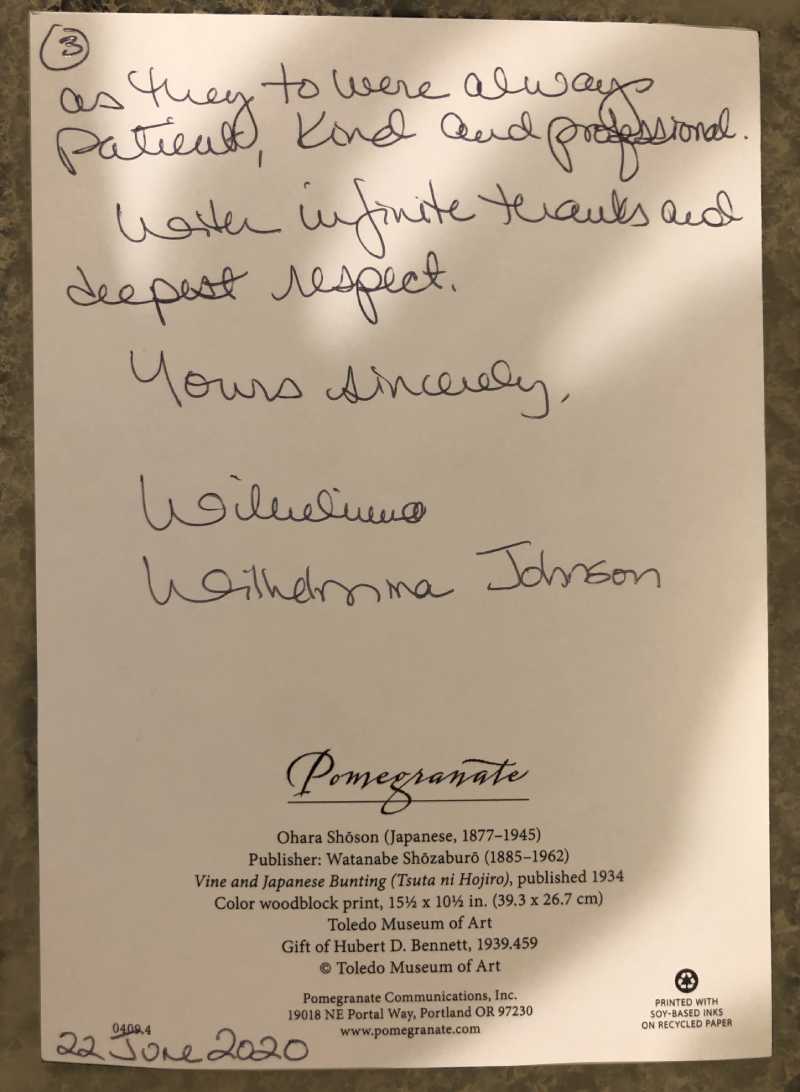 3
as they to were always
patient, Kind and professional.
With infinite thanks and
deepest respect.
Yours sincerely,
Wilhelmina
Wilhelmina Johnson
Pomegranate
Ohara Shōson (Japanese, 1877–1945)
Publisher: Watanabe Shōzaburō (1885–1962)
Vine and Japanese Bunting (Tsuta ni Hojiro), published 1934
Color woodblock print, 15½ x 10½ in. (39.3 x 26.7 cm)
Toledo Museum of Art
Gift of Hubert D. Bennett, 1939.459
© Toledo Museum of Art
Pomegranate Communications, Inc.
19018 NE Portal Way, Portland OR 97230
www.pomegranate.com
PRINTED WITH
SOY-BASED INKS
ON RECYCLED PAPER
0409.4
22 June 2020